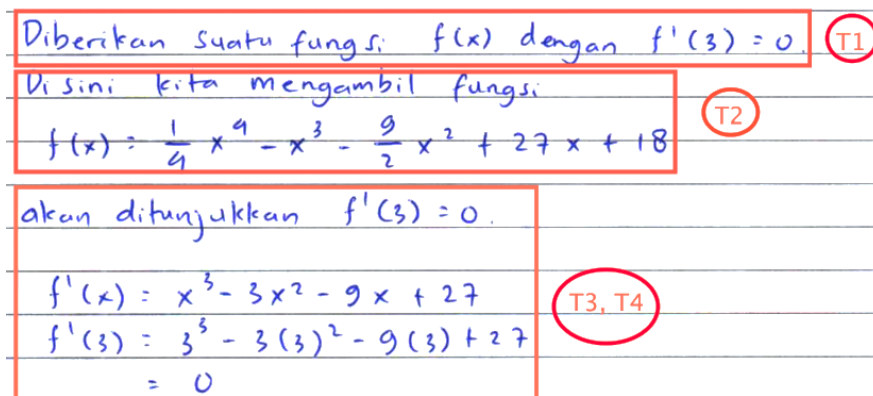 Diberikan suatu fungsi f(x) dengan f'(3) = 0. T1
Disini kita mengambil fungsi
T2
f(x) = 1/4 x^4 - x^3 - 9/2 x^2 + 27x + 18
akan ditunjukkan f'(3) = 0.
f'(x) = x^3 - 3x^2 - 9x + 27
T3, T4
f'(3) = 3^3 - 3(3)^2 - 9(3) + 27
= 0